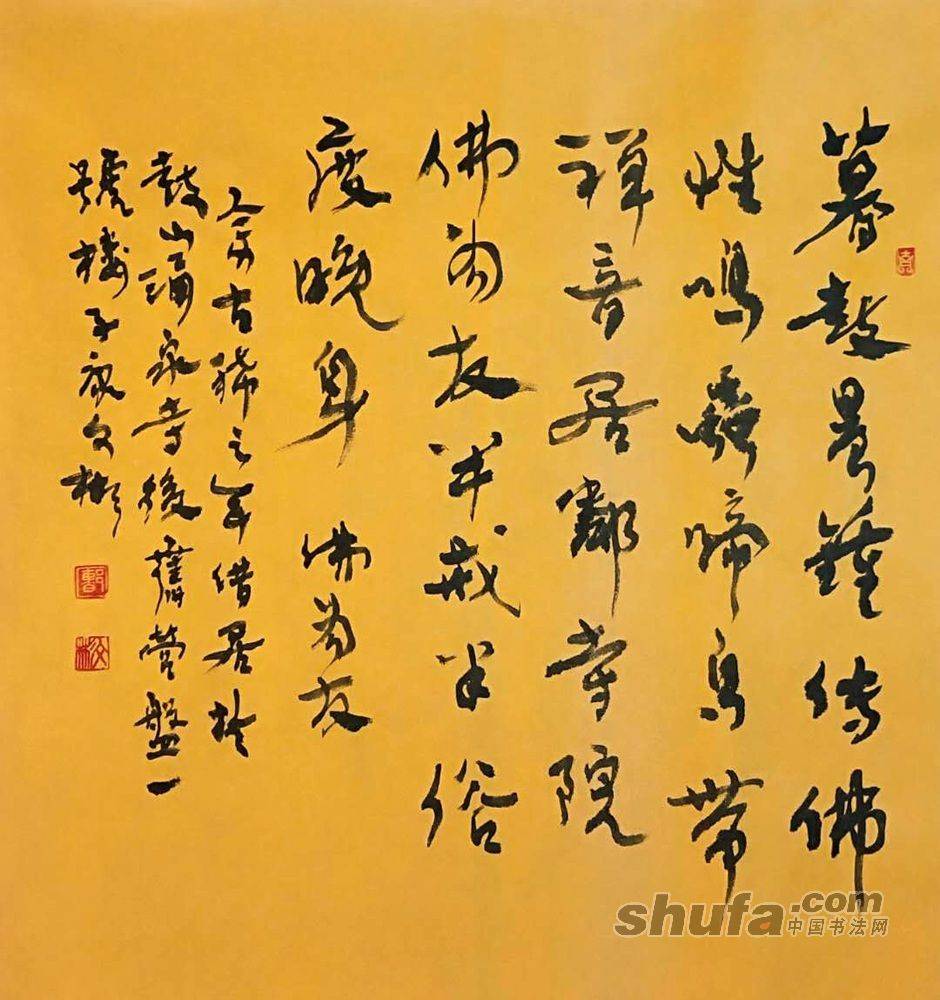 暮鼓晨鐘傳佛
性鳴蟲啼鳥帶
禅音居鄰寺院
佛為友半戒半俗
度晚身 佛為友
余古稀之年借居於
鼓山涌泉寺後舊營盤一
號樓子文彬
shufa.com
中国书法网